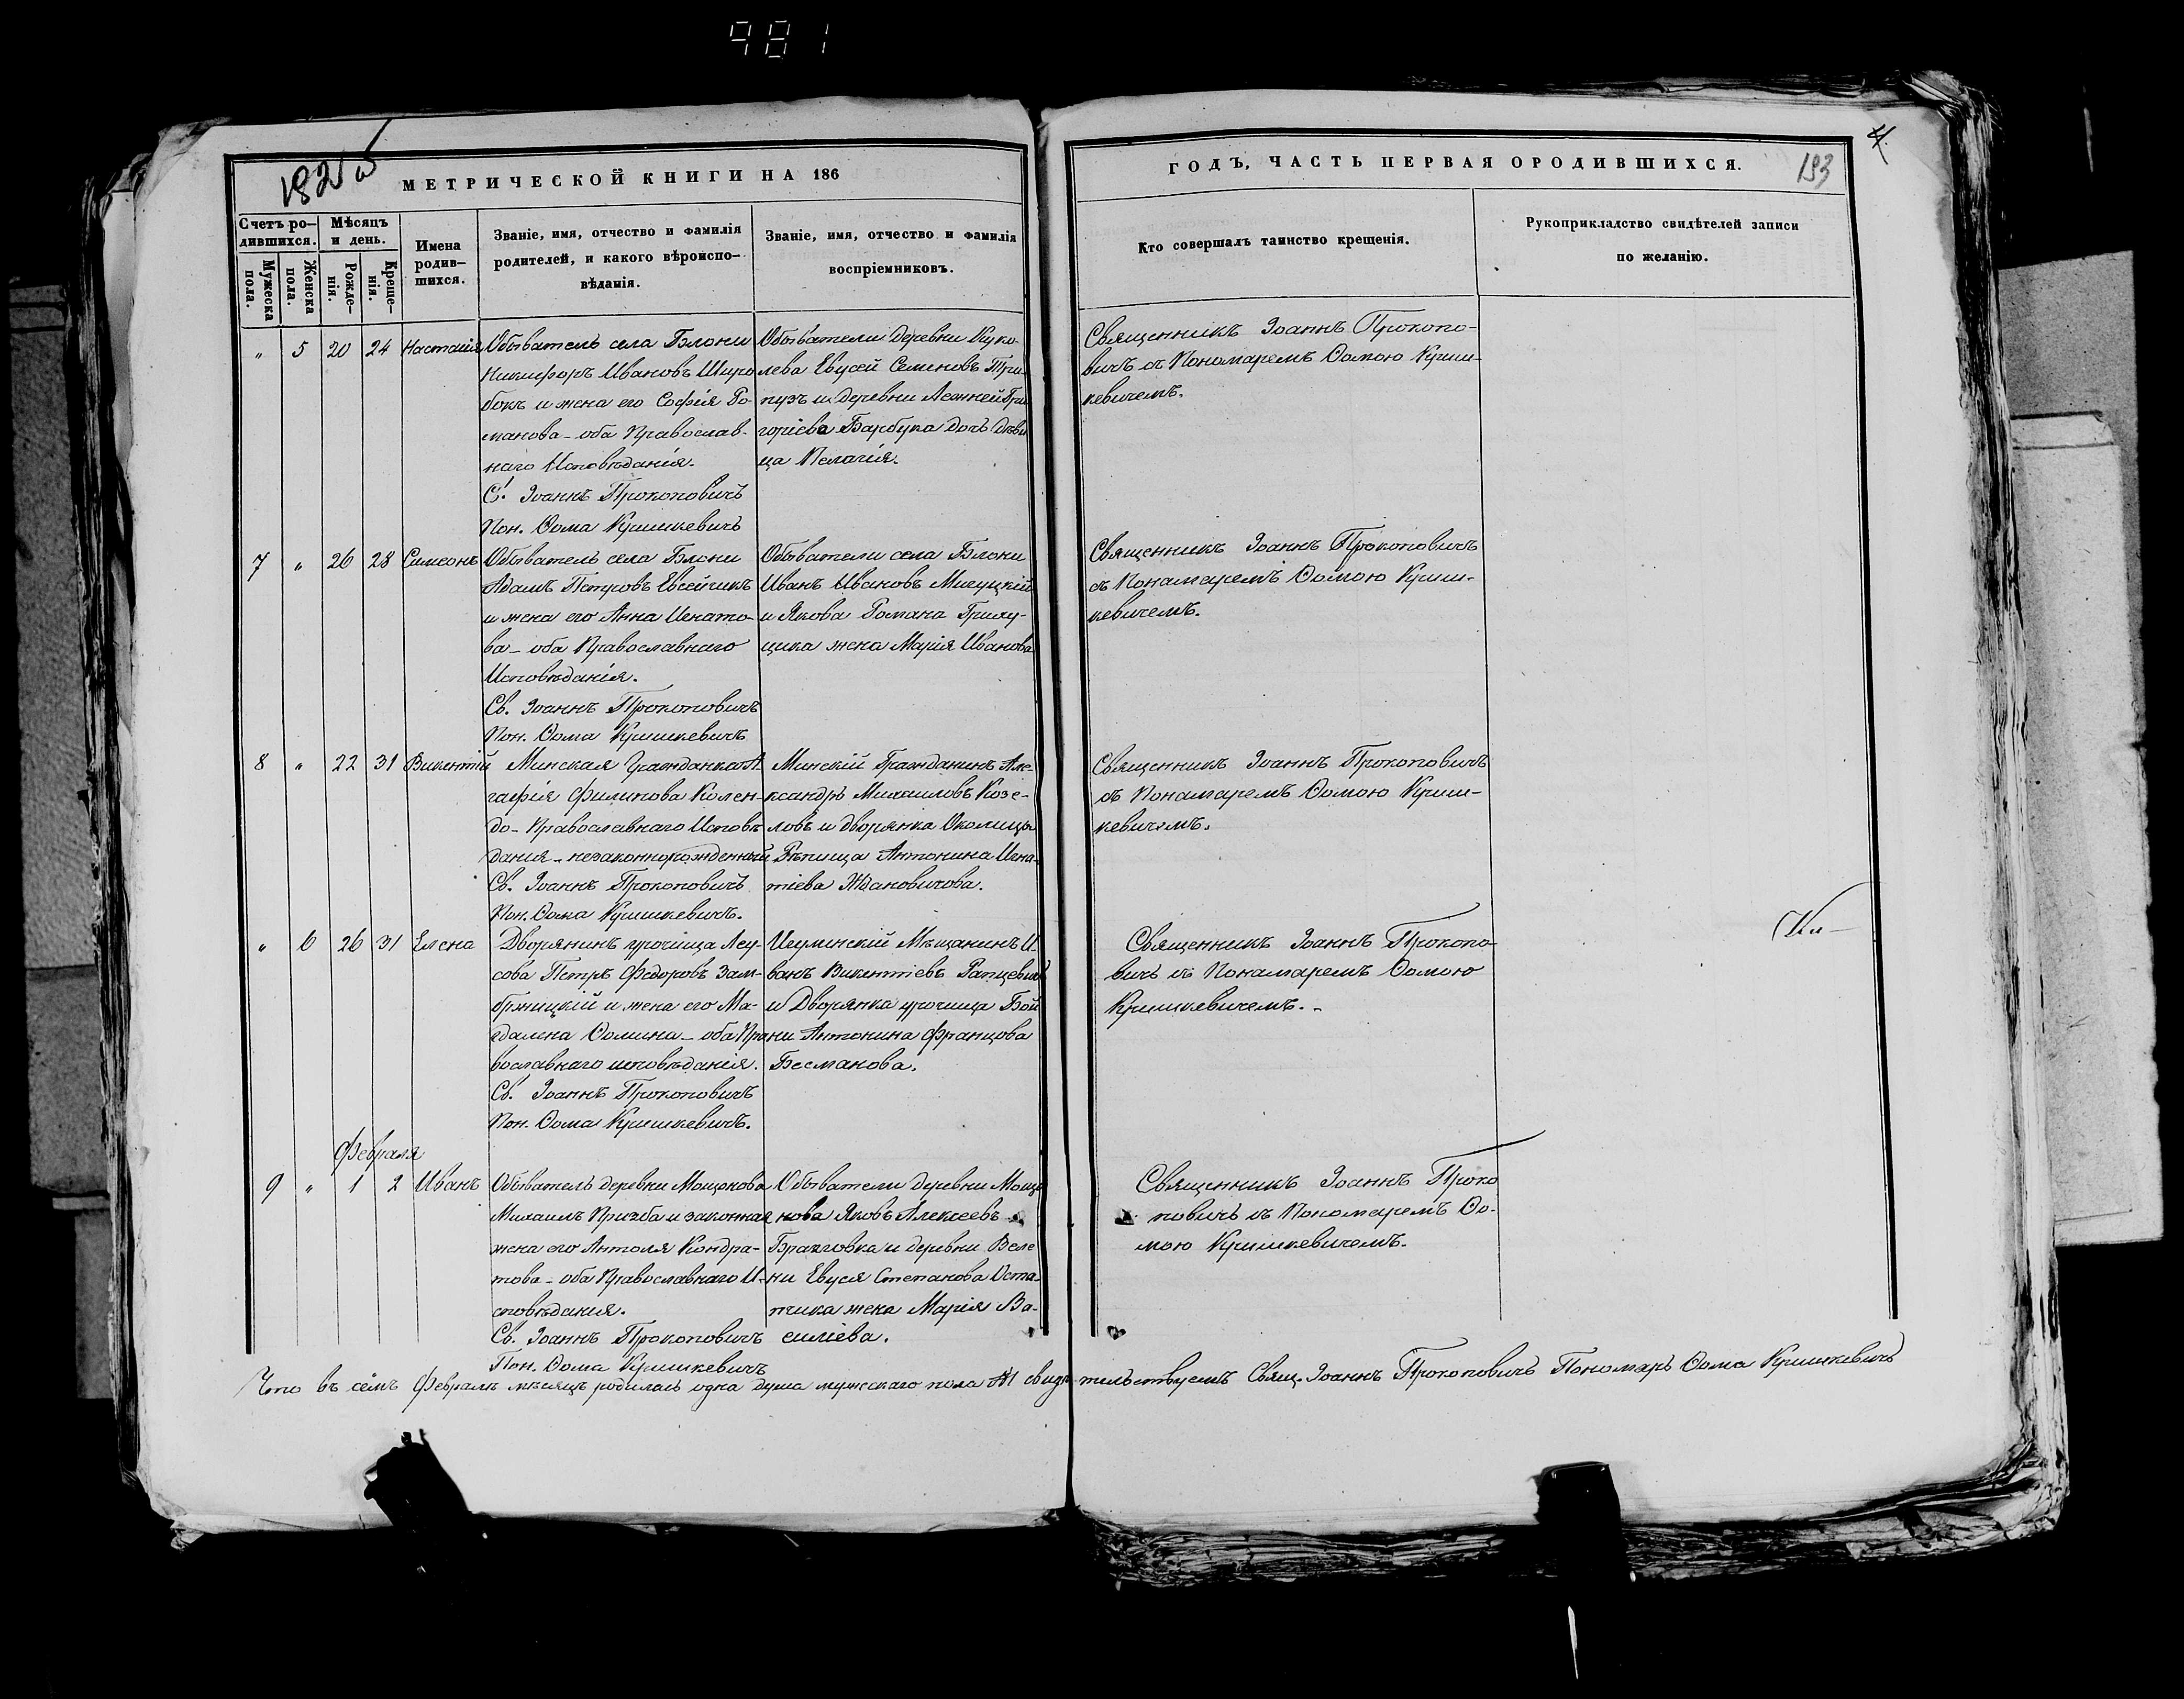 981
192 об
МЕТРИЧЕСКОЙ КНИГИ НА 186
Счетъ ро-
дившихся.
Мужеска
пола.
Женска
пола.
Мѣсяцъ
и день.
Рожде-
нія.
Креще-
нія.
Имена
родив-
шихся.
Званіе, имя, отчество и фамилія
родителей, и какого вѣроиспо-
вѣданія.
Званіе, имя, отчество и фамилія
воспріемниковъ.
ГОДЪ, ЧАСТЬ ПЕРВАЯ О РОДИВШИХСЯ.
193
4.
Кто совершалъ таинство крещенія.
Рукоприкладство свидѣтелей записи
по желанію.
" 5 20 24 Настасія
Обыватель села Блони
Никифоръ Ивановъ Широ
бокъ и жена его Софія Ро-
манова - оба Православ-
наго Исповѣданія.
С. Іоаннъ Прокоповичъ
Пон. Ѳома Кришкевичъ
Обыватели деревни Куко-
лева Евсей Семеновъ Три-
пузъ и деревни Ясянней Гри
горіева Барбука дочь дѣви
ца Пелагія.
Священникъ Іоаннъ Прокопо-
вичъ съ Пономаремъ Ѳомою Криш-
кевичемъ.
7 " 26 28 Симеонъ
Обыватель села Блони
Адамъ Петровъ Евсейчикъ
и жена его Анна Игнато-
ва - оба Православнаго
Исповѣданія.
Св. Іоаннъ Прокоповичъ
Пон. Ѳома Кришкевичъ
Обыватели села Блони
Иванъ Ивановъ
и Якова Романа
щика жена Марія Иванова
Священникъ Іоаннъ Прокоповичъ
съ Понамаремъ Ѳомою Криш-
кевичемъ.
8 " 22 31 Викентій
Минская Гражданка А-
гафія Филипова Колен-
до - Православнаго Исповѣ
данія - незаконнорожденный
Св. Іоаннъ Прокоповичъ
Пон. Ѳома Кришкевичъ.
Минскій Гражданинъ Але-
ксандръ Михаиловъ Козе-
ловъ и дворянка Околицы
Рѣпища Антонина Игна-
тіева Ждановичова.
Священникъ Іоаннъ Прокоповичъ
съ Понамаремъ Ѳомою Криш-
кевичемъ.
" 6 26 31 Елена
Дворянинъ урочища Лѣу-
сова Петръ Федоровъ Зам-
бржицкій и жена его Ма-
гдалена Ѳомина - оба Пра
вославнаго исповѣданія.
Св. Іоаннъ Прокоповичъ
Пон. Ѳома Кришкевичъ.
Игуменскій Мѣщанинъ И-
ванъ Викентіевъ Рапцевичъ
и Дворянка урочища Бой
ни Антонина Францова
Бесманова.
Священникъ Іоаннъ Прокопо-
вичъ съ Понамаремъ Ѳомою
Кришкевичемъ.-
Февраля
9 " 1 2 Иванъ
Обыватель деревни Мощонова
Михаилъ Призба и законная
жена его Антоля Кондра-
това - оба Православнаго И-
сповѣданія.
Св. Іоаннъ Прокоповичъ
Пон. Ѳома Кришкевичъ
Обыватели деревни Мощо
нова Яковъ Алексеевъ
и деревни Веле
ни Евсея Степанова Оста-
пчика жена Марія Ва-
силіева.
Священникъ Іоаннъ Проко
повичъ съ Пономаремъ Ѳо-
мою Кришкевичемъ.
Что въ семъ Февралѣ мѣсяцѣ родилась одна душа мужескаго пола №1 свидѣтельствуемъ Свящ. Іоаннъ Прокоповичъ Пономарь Ѳома Кришкевичъ